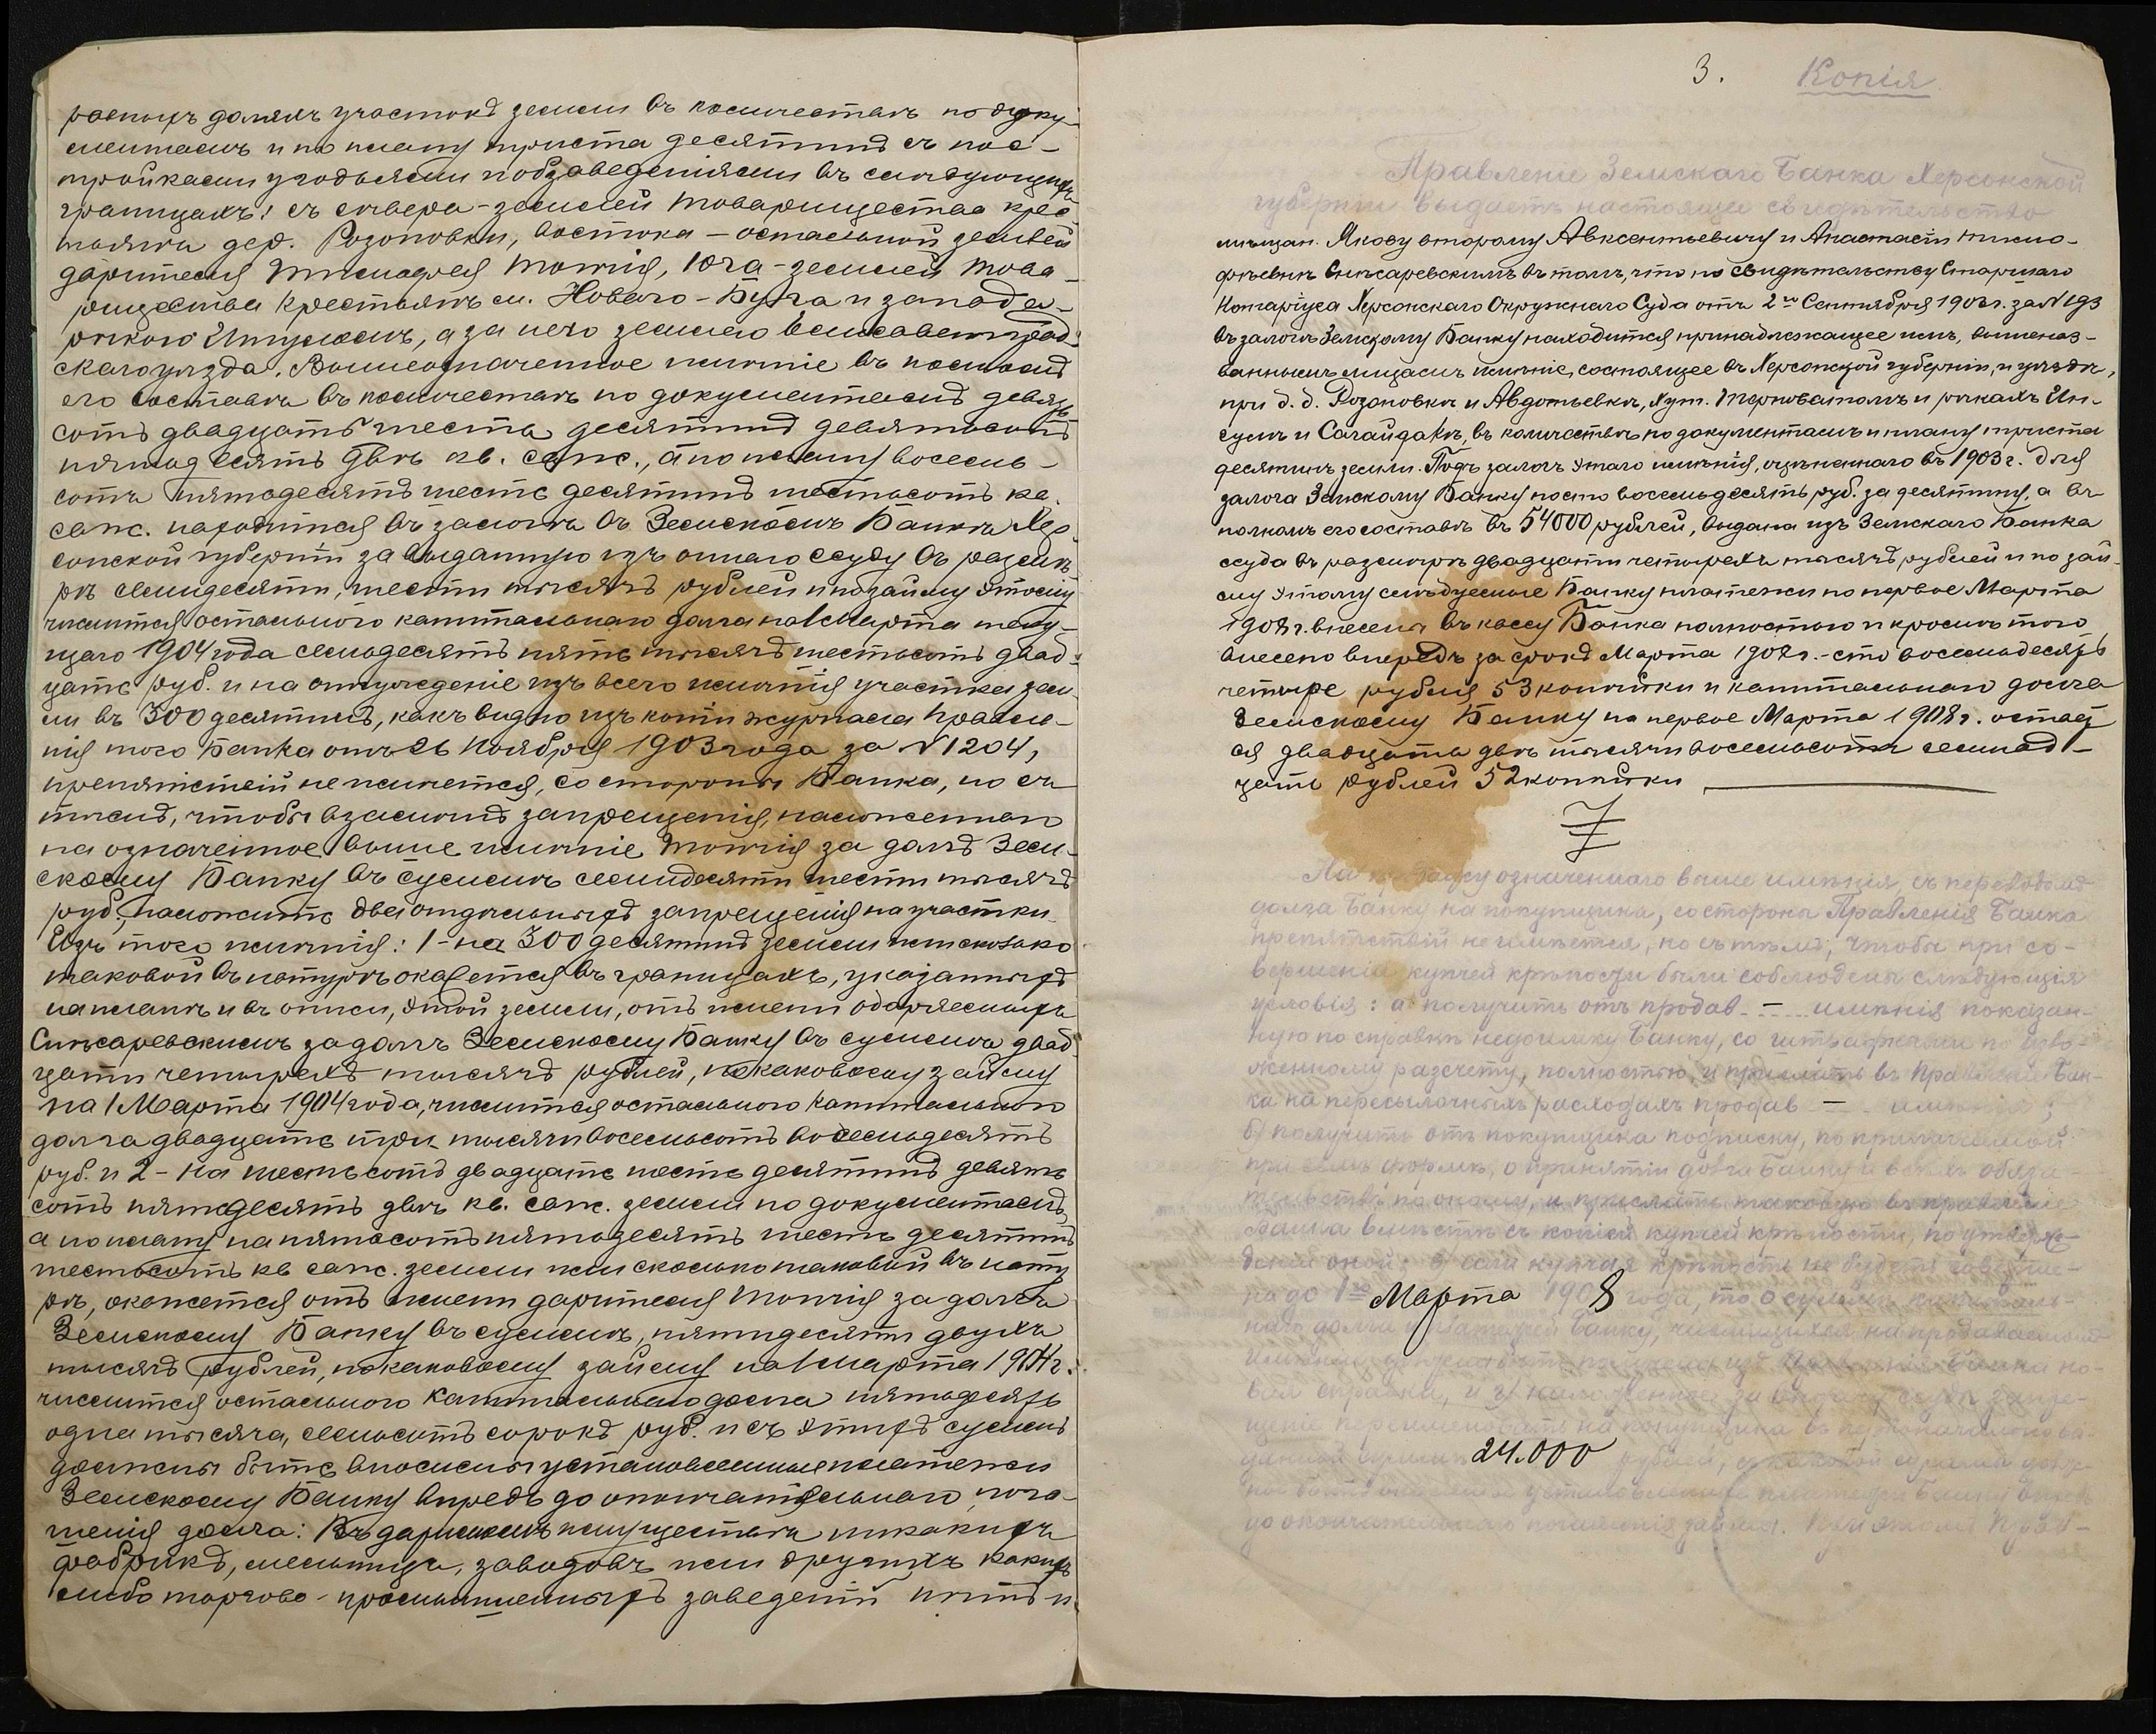 ровныхъ доляхъ участокъ земли въ количествѣ по доку-
ментамъ и по плану триста десятинъ съ пос-
тройками угодьями и обзаведеніями въ слѣдующихъ
границахъ: съ сѣвера - землей товарищества крес-
тьянъ дер. Розоновки, востока - остальной землей
дарителя Тимофея Томчія, юга - землей това-
рищества крестьянъ м. Новаго-Буга и запада -
рѣкою Ингуломъ, а за нею землею Елисаветград-
скаго уѣзда. Вышеозначенное имѣніе въ полномъ
его составѣ въ количествѣ по документамъ девять
сотъ двадцать шесть десятинъ девятьсотъ
пятьдесятъ двѣ кв. саж., а по плану восемь-
сотъ пятьдесятъ шесть десятинъ шестьсотъ кв.
саж. находится въ залогѣ въ Земскомъ Банкѣ Хер-
сонской губерніи за выданную изъ онаго ссуду въ размѣ-
рѣ семидесяти шести тысячъ рублей и по займу этому
числится остального капитальнаго долга на 1 Марта теку-
щаго 1904 года семьдесятъ пять тысячъ шестьсотъ двад-
цать руб. и на отчужденіе изъ всего имѣнія участка зем-
ли въ 300 десятинъ, какъ видно изъ копіи журнала Правле-
нія того Банка отъ 26 Ноября 1903 года за N 1204,
препятствій не имѣется, со стороны Банка, но съ
тѣмъ, чтобы взамѣнъ запрещенія, наложеннаго
на означенное выше имѣніе Томчія за долгъ Зем-
скому Банку въ суммѣ семидесяти шести тысячъ
руб., наложить два отдѣльныхъ запрещенія на участки
изъ того имѣнія: 1 - на 300 десятинъ земли или сколько
таковой въ натурѣ окажется въ границахъ, указанныхъ
на планѣ и въ описи, этой земли, отъ имени одаряемыхъ
Снѣсаревскимъ за долгъ Земскому Банку въ суммѣ двад-
цати четырехъ тысячъ рублей, по каковому займу
на 1 Марта 1904 года, числится остального капитальнаго
долга двадцать три тысячи восемьсотъ восемьдесятъ
руб. и 2 - на шестьсотъ двадцать шесть десятинъ девять
сотъ пятьдесятъ двѣ кв. саж. земли по документамъ,
а по плану на пятьсотъ пятьдесятъ шесть десятинъ
шестьсотъ кв саж. земли или сколько таковой въ нату-
рѣ, окажется отъ имени дарителя Томчія за долгъ
Земскому Банку въ суммѣ, пятидесяти двухъ
тысячъ рублей, по каковому займу на 1 Марта 1904 г.
числится остального капитальнаго долга пятьдесятъ
одна тысяча, семьсотъ сорокъ руб. и съ этихъ суммъ
должны быть вносимы установленные платежи
Земскому Банку впредь до окончательнаго пога-
шенія долга: Въ даримомъ имуществѣ никакихъ
фабрикъ, мельницъ, заводовъ или другихъ какихъ
либо торгово-промышленныхъ заведеній нѣтъ и
3. Копія
Правленіе Земскаго Банка Херсонской
губерніи выдаетъ настоящее свидѣтельство
мѣщан. Якову второму Авксентьевичу и Анастасіи Тимо-
фѣевнѣ Снѣсаревскимъ въ томъ, что по свидѣтельству Старшаго
Нотаріуса Херсонскаго Окружнаго Суда отъ 2го Сентября 1903 г. за N 193
въ залогѣ Земскому Банку находится принадлежащее имъ, вышеназ-
ваннымъ лицамъ имѣніе, состоящее въ Херсонской губерніи, и уѣздѣ,
при д. д. Розоновкѣ и Авдотьевкѣ, хут. Терноватомъ и рѣкахъ Ин-
гулѣ и Сагайдакѣ, въ количествѣ по документамъ и плану триста
десятинъ земли. Подъ залогъ этого имѣнія, оцѣненнаго въ 1903 г. для
залога Земскому Банку по сто восемьдесятъ руб. за десятину, а въ
полномъ его составѣ въ 54000 рублей, выдана изъ Земскаго Банка
ссуда въ размѣрѣ двадцати четырехъ тысячъ рублей и по зай-
му этому слѣдуемые Банку платежи по первое Марта
1908 г. внесены въ кассу Банка полностью и кромѣ того
внесено впередъ за срокъ Марта 1908 г. - сто восемьдесятъ
четыре рубля, 53 копѣйки и капитальнаго долга
Земскому Банку на первое Марта 1908 г. остает-
ся двадцать двѣ тысячи восемьсотъ семнад-
цать рублей 52 копѣйки
На продажу означеннаго выше имѣнія, съ переводомъ
долга Банку на покупщика, со стороны Правленія Банка
препятствій не имѣется, но съ тѣмъ, чтобы при со-
вершеніи купчей крѣпости были соблюдены слѣдующія
условія: а) получить отъ продав - имѣнія показан-
ную по справкѣ недоимку Банку, со штрафами по изло-
женному разсчету, полностью, и прислать въ Правленіе Бан-
ка на пересылочныхъ расходахъ продав - имѣнія;
б) получить отъ покупщика подписку, по прилагаемой
при семъ формѣ, о принятіи долга Банку и всѣхъ обяза-
тельствъ по оному, и прислать таковую въ правленіе
Банка вмѣстѣ съ копіей купчей крѣпости, по утверж-
деніи оной; в) если купчая крѣпость не будетъ соверше-
на до 1го Марта 1908 года, то о суммѣ капиталь-
наго долга и платежей Банку, числящихся на продаваемомъ
имѣніи, должна быть получена изъ Правленія Банка но-
вая справка, и г)
24.000 рублей,